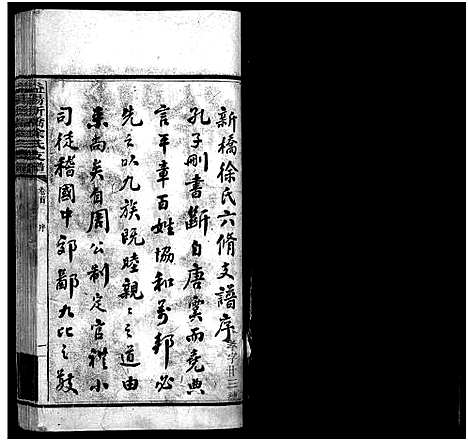 新橋徐氏六脩支譜序
孔子刪書斷自唐虞而堯典
言平章百姓協和萬邦必
先之以九族既睦親之之道由
來尚矣自周公制定官禮小
司徒稽國中郊鄙九比之數
卷首 序